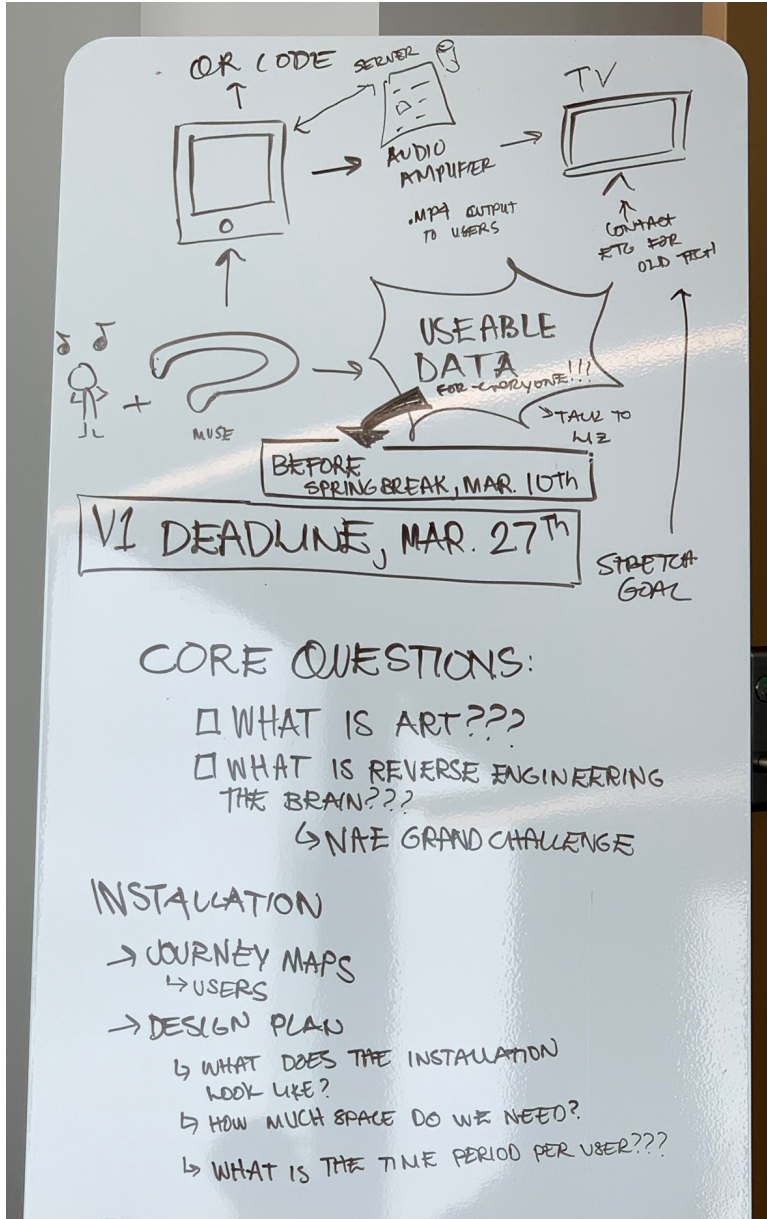 QR CODE
SERVER
TV
AUDIO
AMPLIFIER
.MP4 OUTPUT
TO USERS
CONTACT
ETG FOR
OLD TECH!
USEABLE
DATA
FOR EVERYONE!!!
MUSE
TALK TO
LIZ
BEFORE
SPRING BREAK, MAR. 10th
V1 DEADLINE, MAR. 27Th
STRETCH
GOAL
CORE QUESTIONS:
WHAT IS ART???
WHAT IS REVERSE ENGINEERING
THE BRAIN???
NAE GRAND CHALLENGE
INSTALLATION
JOURNEY MAPS
USERS
DESIGN PLAN
WHAT DOES THE INSTALLATION
LOOK LIKE?
HOW MUCH SPACE DO WE NEED?
WHAT IS THE TIME PERIOD PER USER???